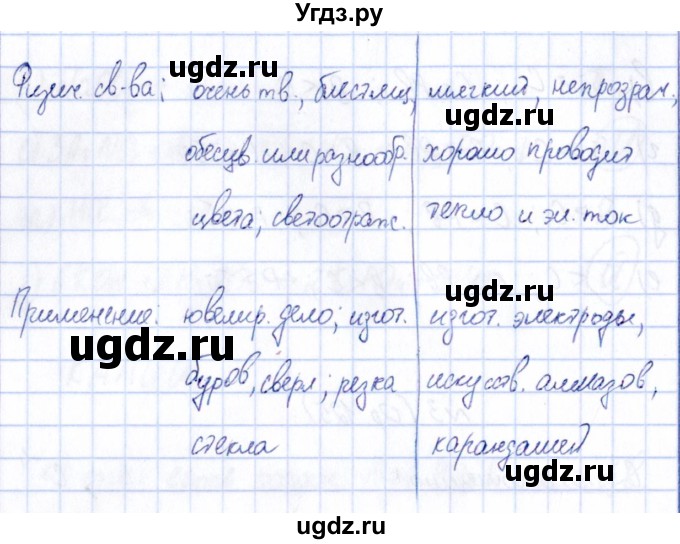 Угдз.ру
ugdz.ru
ugdz.ru
Физич. св-ва; очень тв., блестящ, мягкий, непрозрач.,
обесцв. или разнообр. хорошо проводит
цвета; светоотраж. тепло и эл. ток
ugdz.ru
ugdz.ru
Применение: ювелир. дело; изгот. изгот. электроды,
ugdz.ru
буров, сверл; резка искусств. алмазов,
стекла карандашей
ugdz.ru
ugdz.ru
ugdz.ru